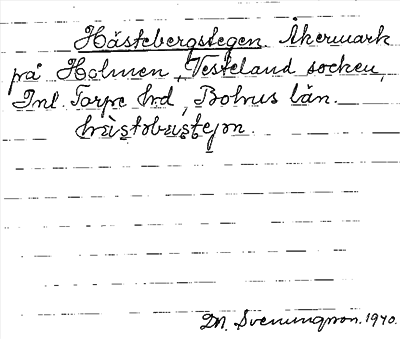 Hästebergstegen. Åkermark
på Holmen, Vesteland socken,
Inl. Torpe hrd, Bohus län.
hæ̀stəbæʂtejɳ.
D. Svenungsson. 1940.